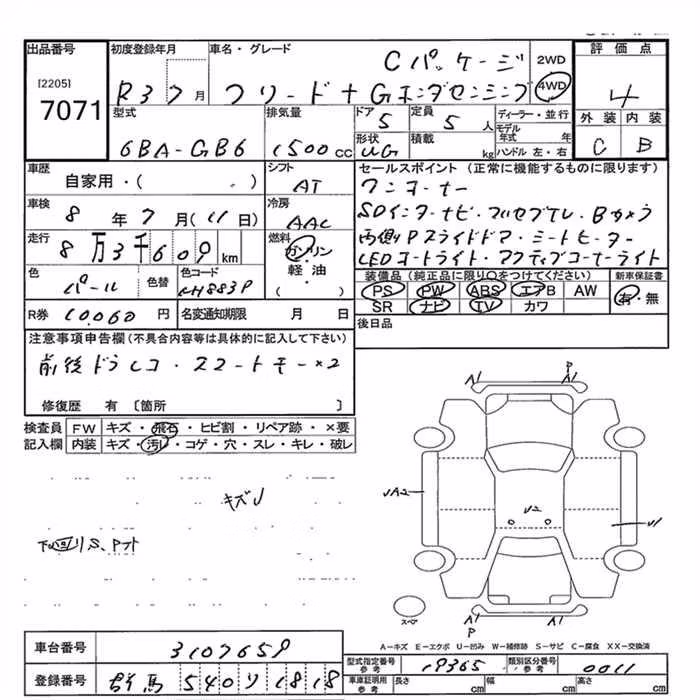 出品番号
[2205]
7071
初度登録年月
R3 7月
車名・グレード
Cパッケージ
フリード+Gホンダセンシング
2WD
4WD
評価点
4
外装 内装
C B
型式
6BA-GB6
排気量
1500cc
ドア
5
定員
5人
形状
UG
積載
kg
ディーラー・並行
モデル年式 年
ハンドル 左・右
車歴
自家用・( )
シフト
AT
セールスポイント (正常に機能するものに限ります)
ワンオーナー
SDインターナビ・フルセグTV・Bカメラ
両側Pスライドドア・シートヒーター
LEDオートライト・アクティブコーナーライト
車検
8年7月(11日)
冷房
AAC
走行
8万3千609km
燃料
ガソリン
軽・油
( )
色
パール
色替
色コード
NH883P
装備品 (純正品に限り○をつけてください)
PS PW ABS エアB AW
SR ナビ TV カワ
新車保証書
有・無
R券
10,060円
名変通知期限
月 日
後日品
注意事項申告欄(不具合内容等は具体的に記入して下さい)
前後ドラレコ・スマートキー×2
修復歴 有 [箇所 ]
検査員記入欄
FW キズ・飛石・ヒビ割・リペア跡・×要
内装 キズ・汚レ・コゲ・穴・スレ・キレ・破レ
キズU
S、Pフト
A1
P
A1
UA2
U2
U1
A1
P
A1
スペア
A-キズ E-エクボ U-凹み W-補修跡 S-サビ C-腐食 XX-交換済
車台番号
3107659
登録番号
群馬 540 り 1818
型式指定番号 参考
19365
類別区分番号 参考
0011
車庫証明用 参考
長さ cm
幅 cm
高さ cm